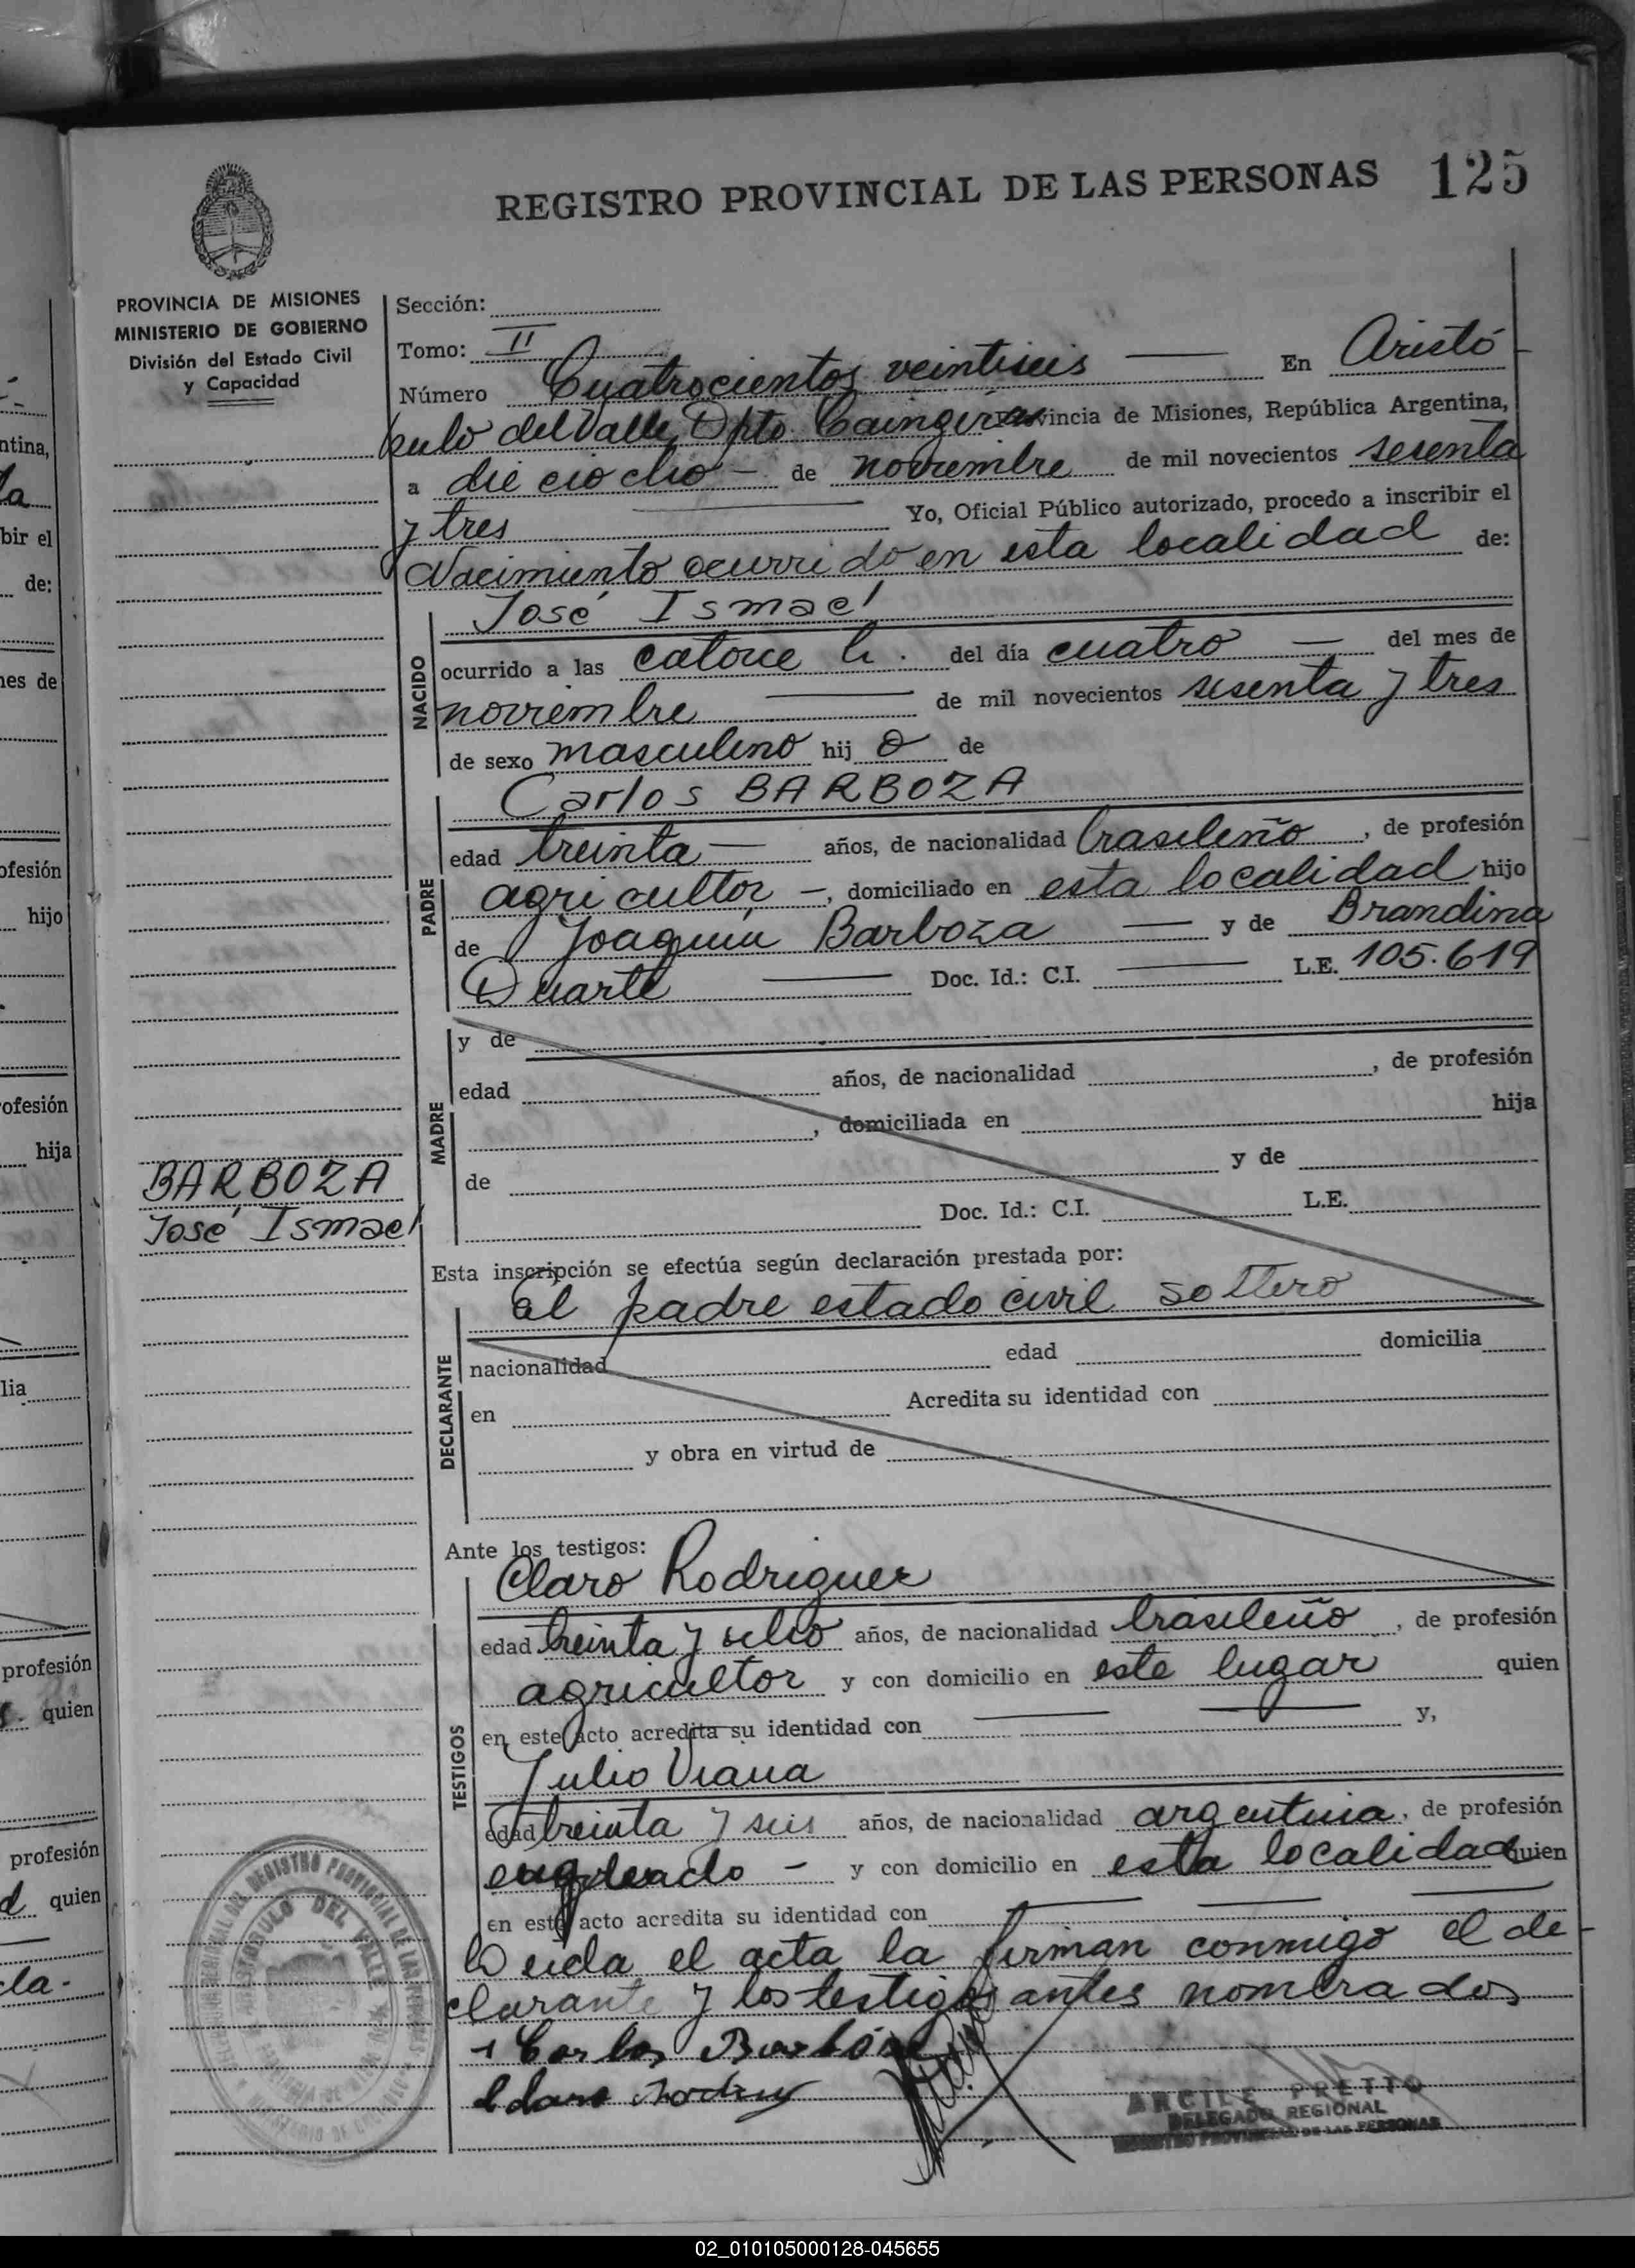 REGISTRO PROVINCIAL DE LAS PERSONAS 125
PROVINCIA DE MISIONES
MINISTERIO DE GOBIERNO
División del Estado Civil
y Capacidad
Sección:
Tomo: II
Número Cuatrocientos veintiseis — En Aristó-
bulo del Valle, Dpto. Cainguás Provincia de Misiones, República Argentina,
a die cio cho — de noviembre de mil novecientos sesenta
y tres — Yo, Oficial Público autorizado, procedo a inscribir el
Nacimiento ocurrido en esta localidad de:
NACIDO
José Ismael
ocurrido a las catorce h. del día cuatro — del mes de
noviembre — de mil novecientos sesenta y tres
de sexo masculino hij o de
PADRE
Carlos BARBOZA
edad treinta — años, de nacionalidad brasileño, de profesión
agricultor —, domiciliado en esta localidad hijo
de Joaquín Barboza — y de Brandina
Duarte — Doc. Id.: C.I. — L.E. 105.619
MADRE
y de
edad años, de nacionalidad , de profesión
, domiciliada en hija
de y de
Doc. Id.: C.I. L.E.
BARBOZA
José Ismael
Esta inscripción se efectúa según declaración prestada por:
DECLARANTE
el padre estado civil soltero
nacionalidad edad domicilia
en Acredita su identidad con
y obra en virtud de
Ante los testigos:
TESTIGOS
Claro Rodriguez
edad treinta y ocho años, de nacionalidad brasileño, de profesión
agricultor y con domicilio en este lugar quien
en este acto acredita su identidad con — — y,
Julio Viana
edad treinta y seis años, de nacionalidad argentina, de profesión
empleado — y con domicilio en esta localidad quien
en este acto acredita su identidad con — — —
Leida el acta la firman conmigo el de-
clarante y los testigos antes nombrados
Carlos Barboza
Claro
ARCILE PRETTO
DELEGADO REGIONAL
REGISTRO PROVINCIAL DE LAS PERSONAS
ARISTOBULO DEL VALLE
ntina,
bir el
de:
nes de
ofesión
hijo
ofesión
hija
lia
profesión
quien
profesión
quien
02_010105000128-045655